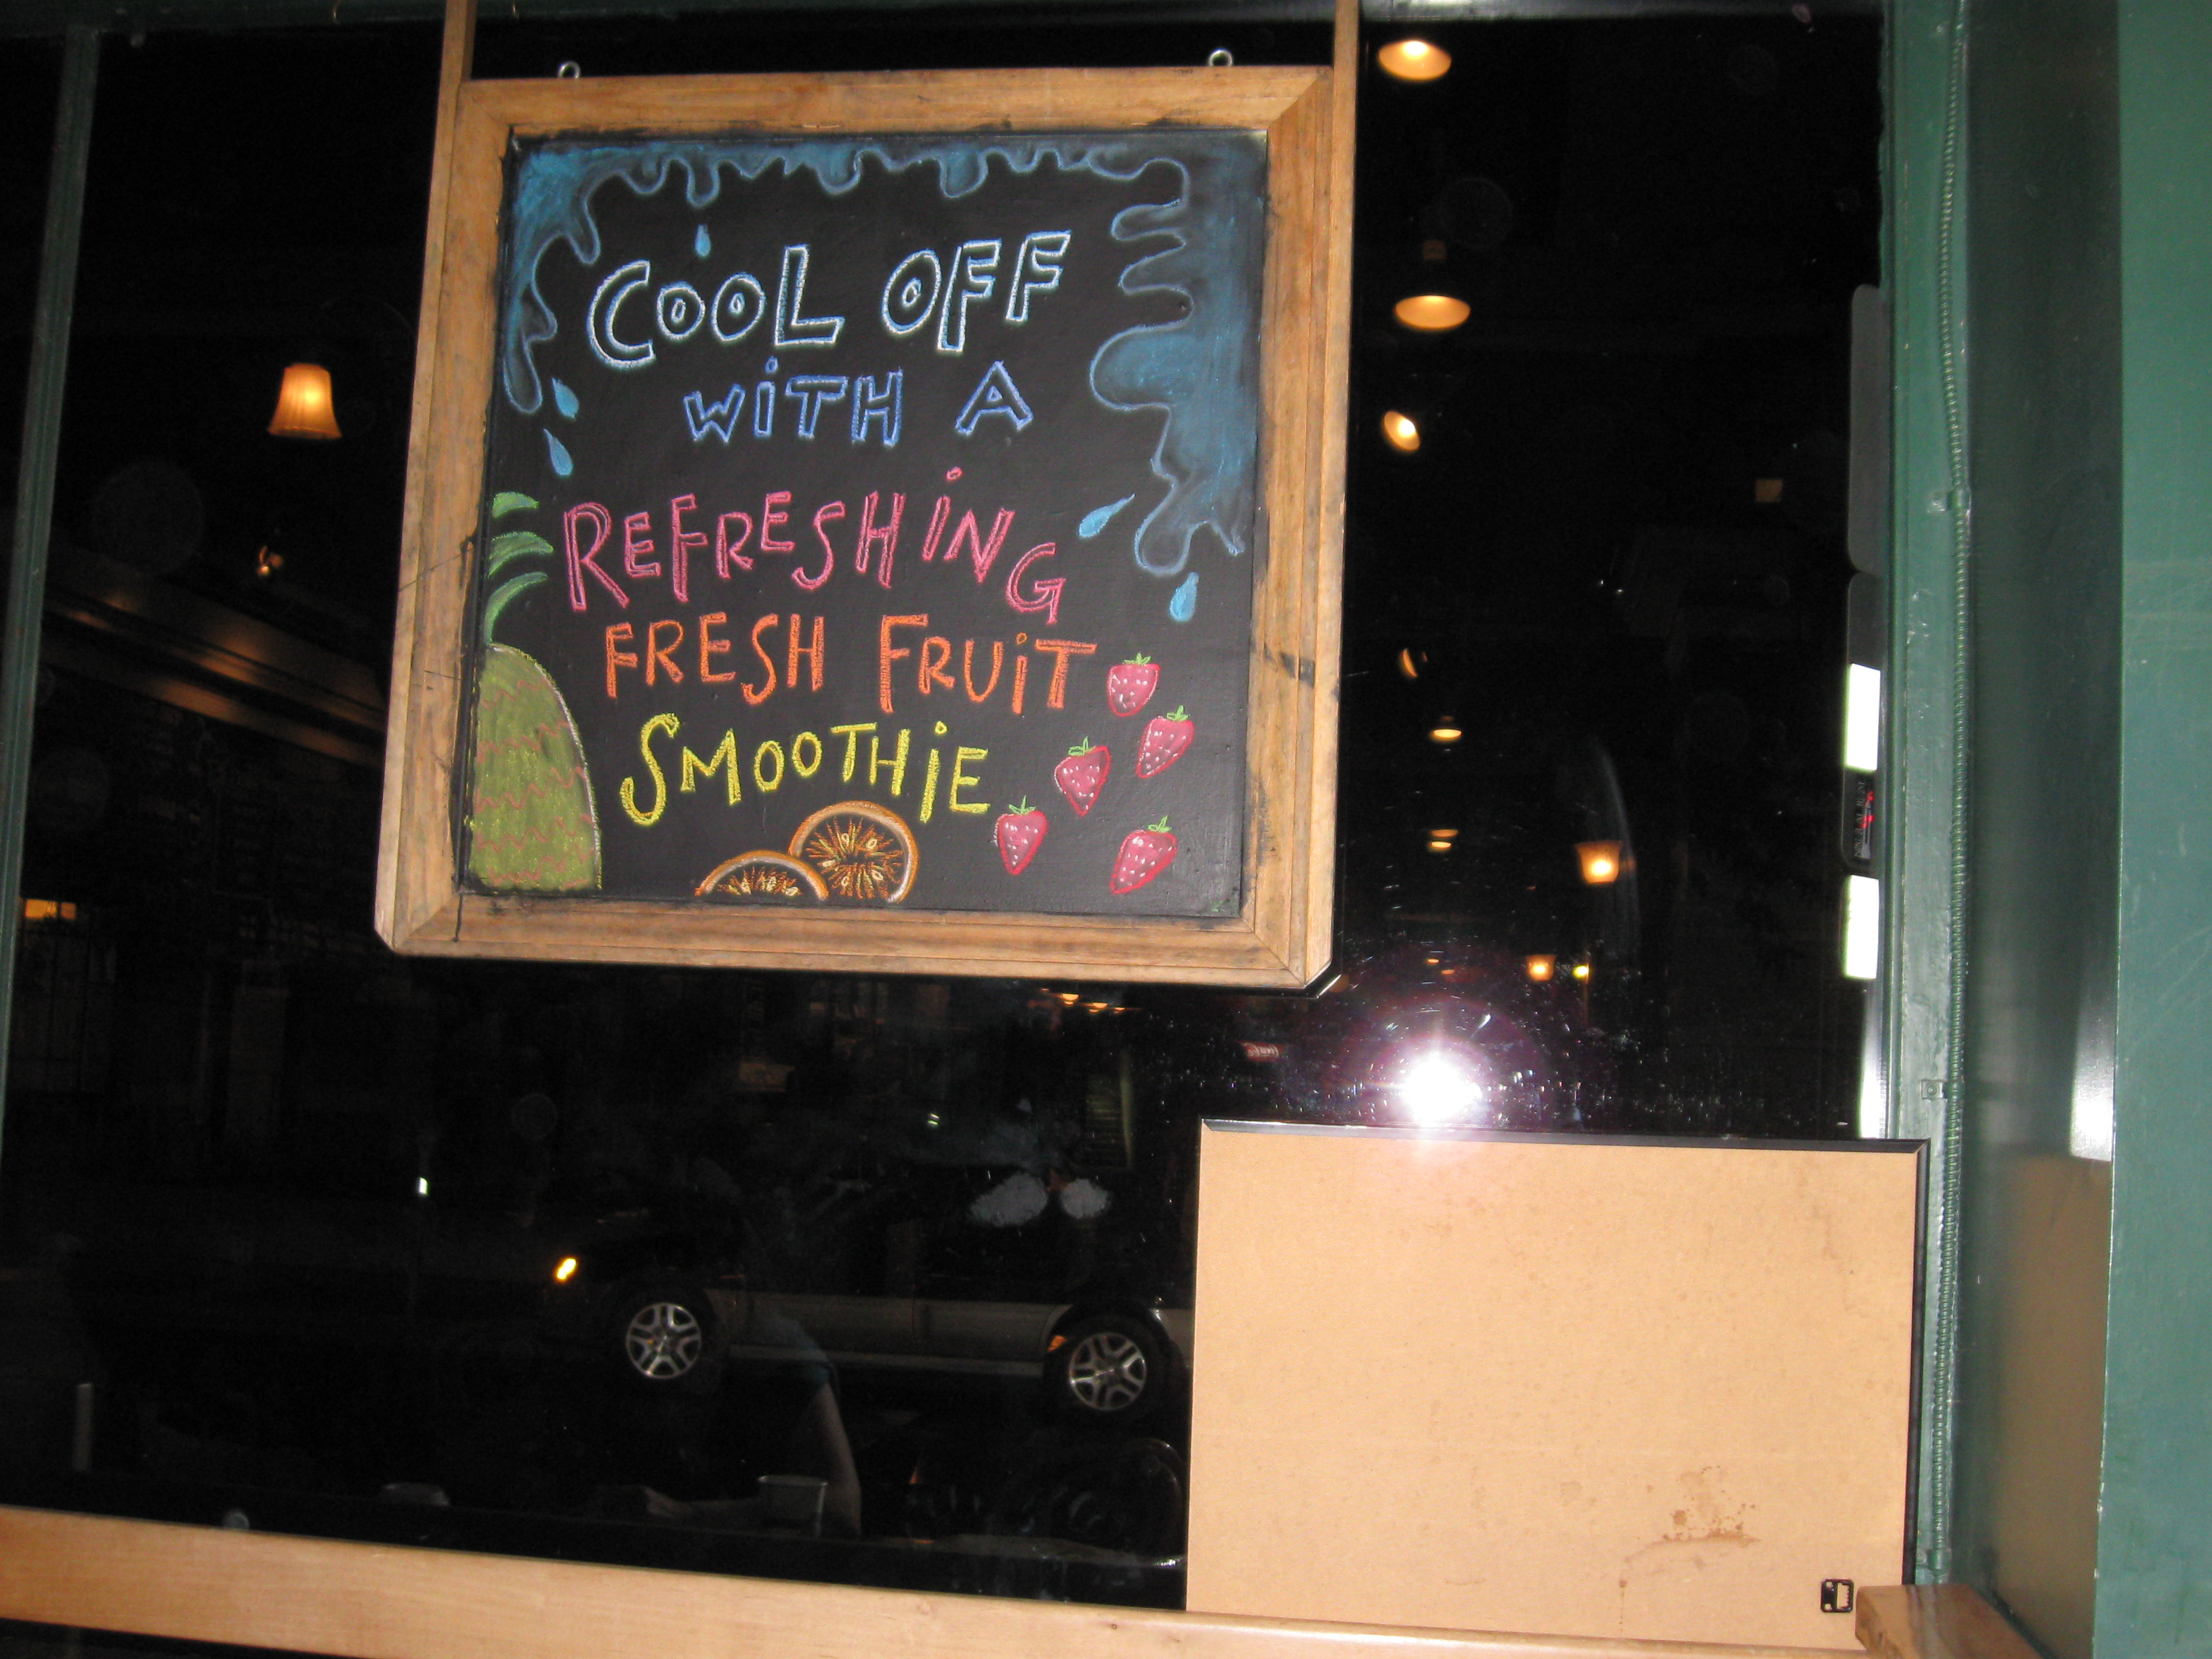 COOL OFF
WITH A
REFRESHING
FRESH FRUIT
SMOOTHIE